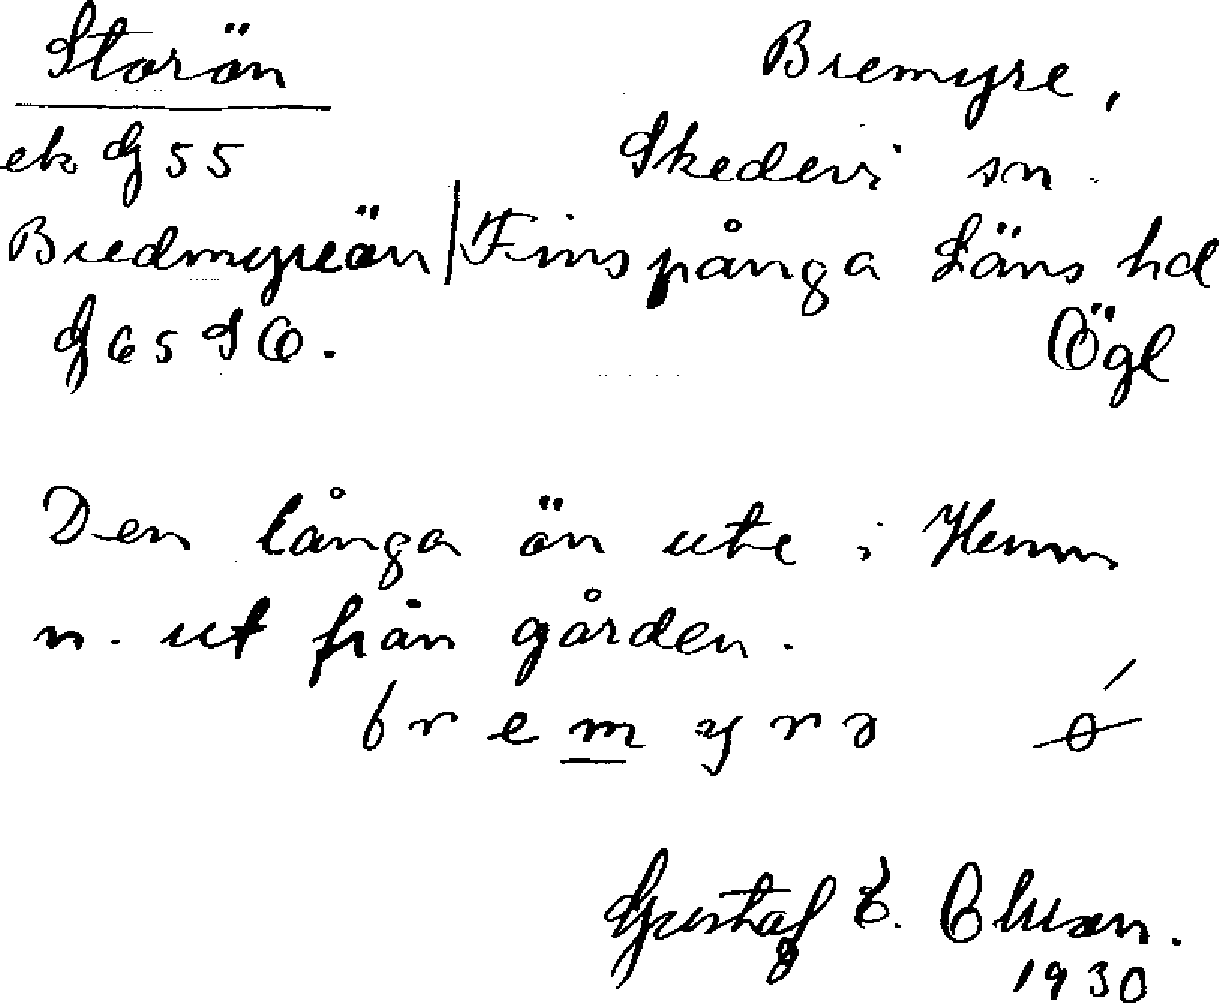 Storön
Bremyre,
ek G 55
Skedevi sn.
Bredmyreön
Finspånga Läns hd
G 65 SO.
Ögl
Den långa ön ute i Hemm
n. ut från gården.
bremyrə
Gustaf E.
1930